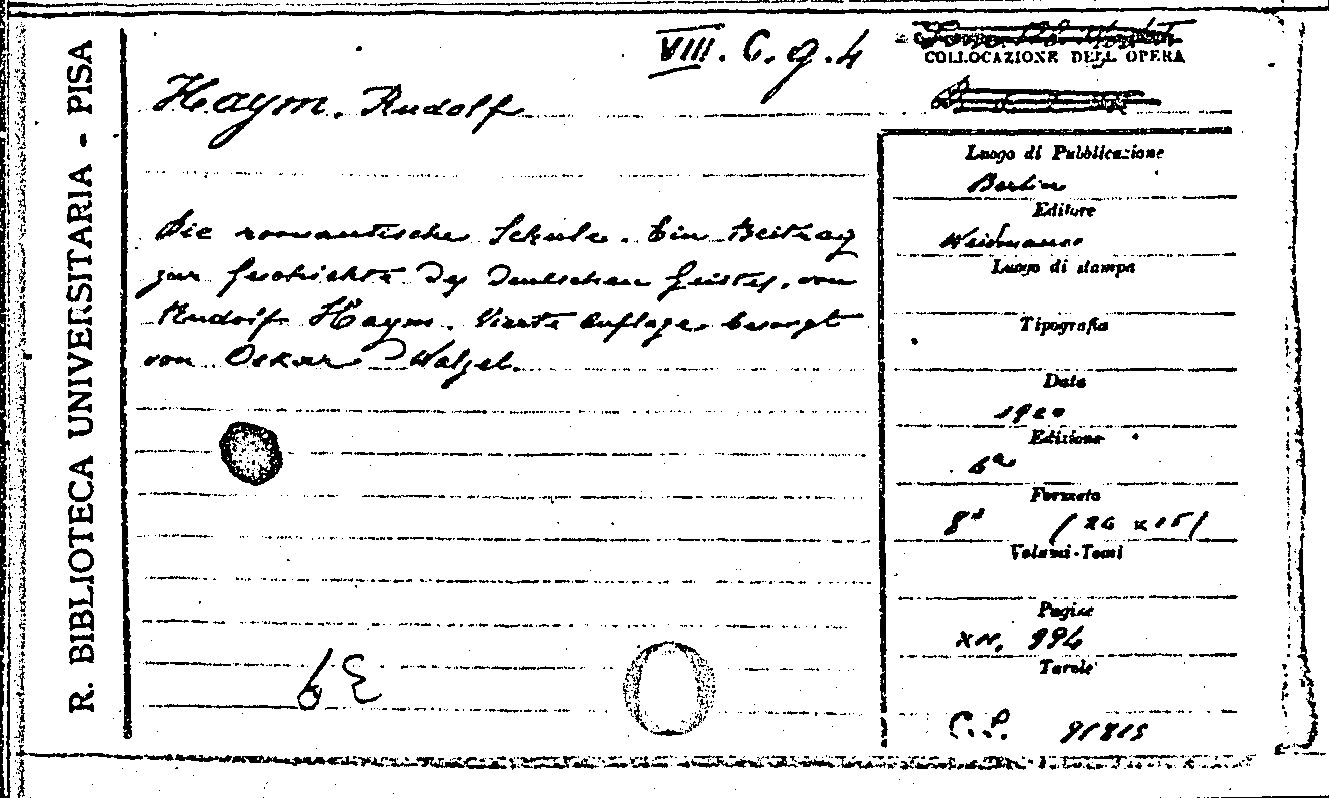 R. BIBLIOTECA UNIVERSITARIA - PISA
VIII. C. g. 4
COLLOCAZIONE DELL' OPERA
Haym. Rudolf
Die romantische Schule. Ein Beitrag
zur Geschichte des deutschen Geistes. von
Rudolf Haym. Vierte Auflage besorgt
von Oskar Walzel.
6
Luogo di Pubblicazione
Berlin
Editore
Weidmann
Luogo di stampa
Tipografia
Data
1920
Edizione
Formato
8°
Volumi-Tomi
Pagine
994
Tavole